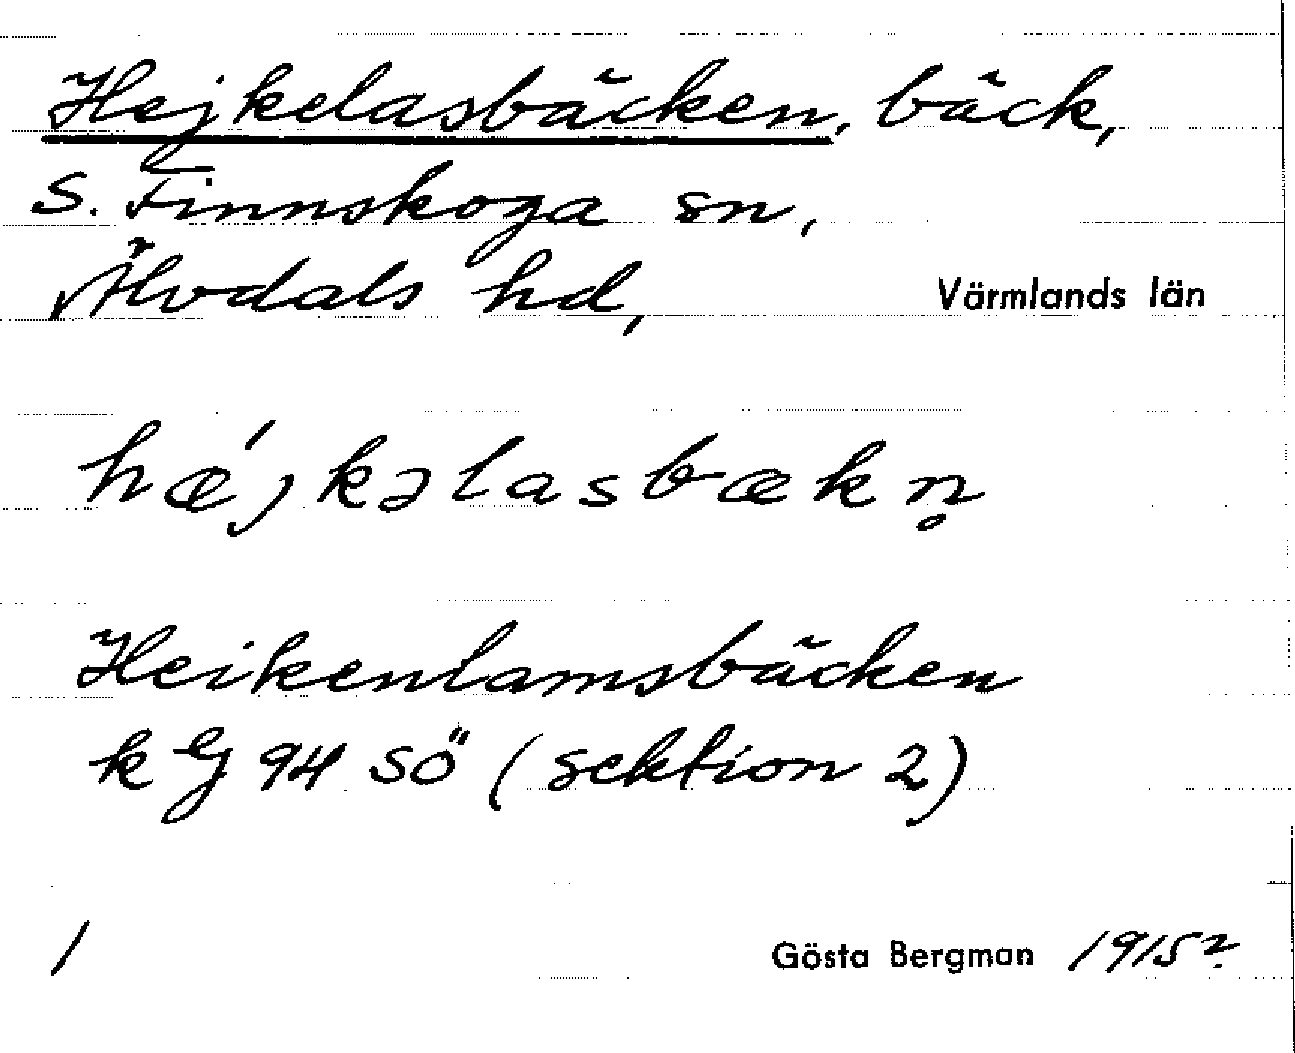 Hejkelasbäcken, bäck,
S. Finnskoga sn,
Älvdals hd, Värmlands län
hǽjkəlasbækn̥
Heikenlamsbäcken
k ej 94 SÖ (sektion 2)
1 Gösta Bergman 1915?